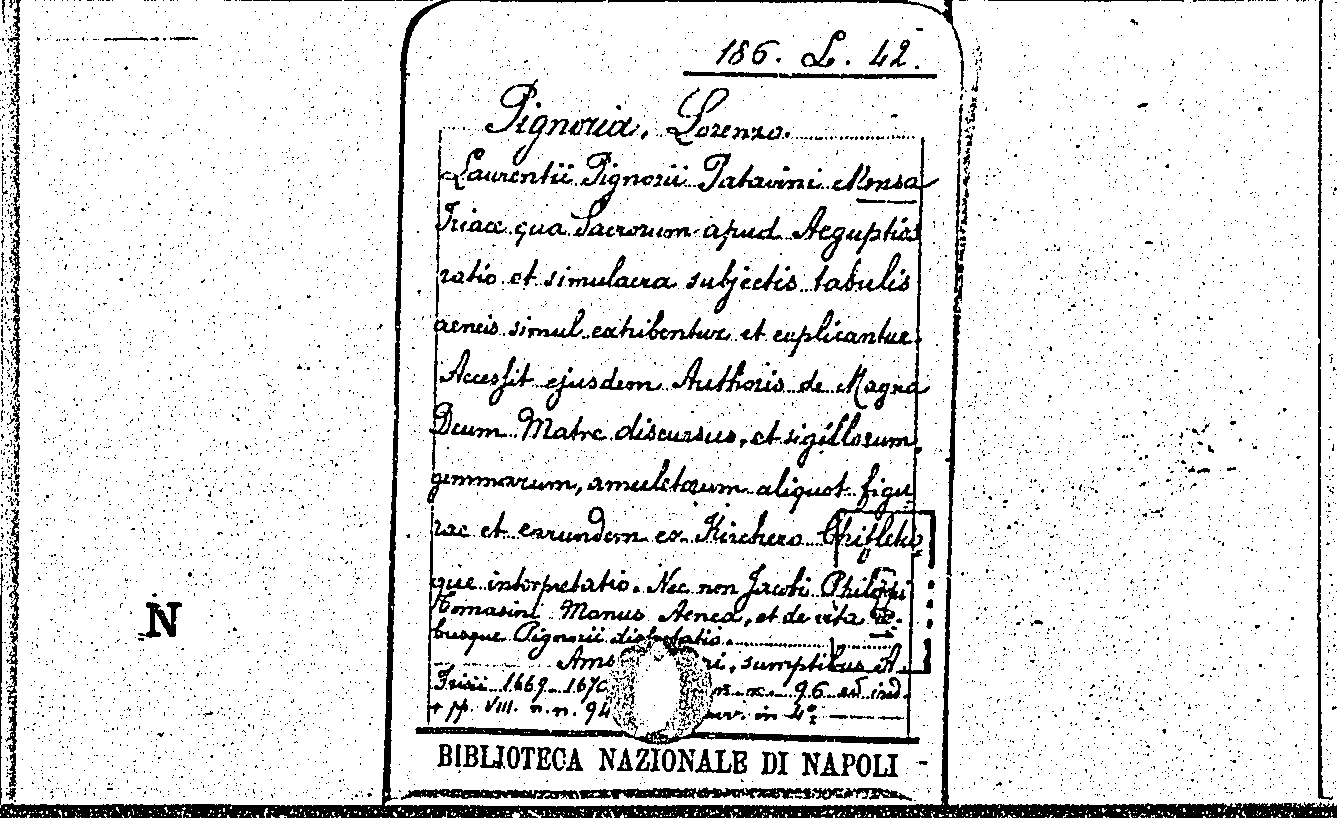 186. L. 42.
Pignoria, Lorenzo.
Laurentii Pignorii Patavini Mensa
Isiaca qua Sacrorum apud Aegyptios
ratio et simulacra subjectis tabulis
aeneis simul exhibentur et explicantur.
Accessit ejusdem Authoris de Magna
Deum Matre discursus, et sigillorum,
gemmarum, amuletorum aliquot figu
rae et earundem ex Kirchero Chifletio
que interpretatio. Nec non Jacobi Philippi
Tomasini Manus Aenea, et de vita
busque Pignorii dissertatio.
Ams ri, sumptibus A.
Frisii 1669-1670 96 ed ind.
+ pp. VIII. n.n. 94 in 4º
N
BIBLIOTECA NAZIONALE DI NAPOLI